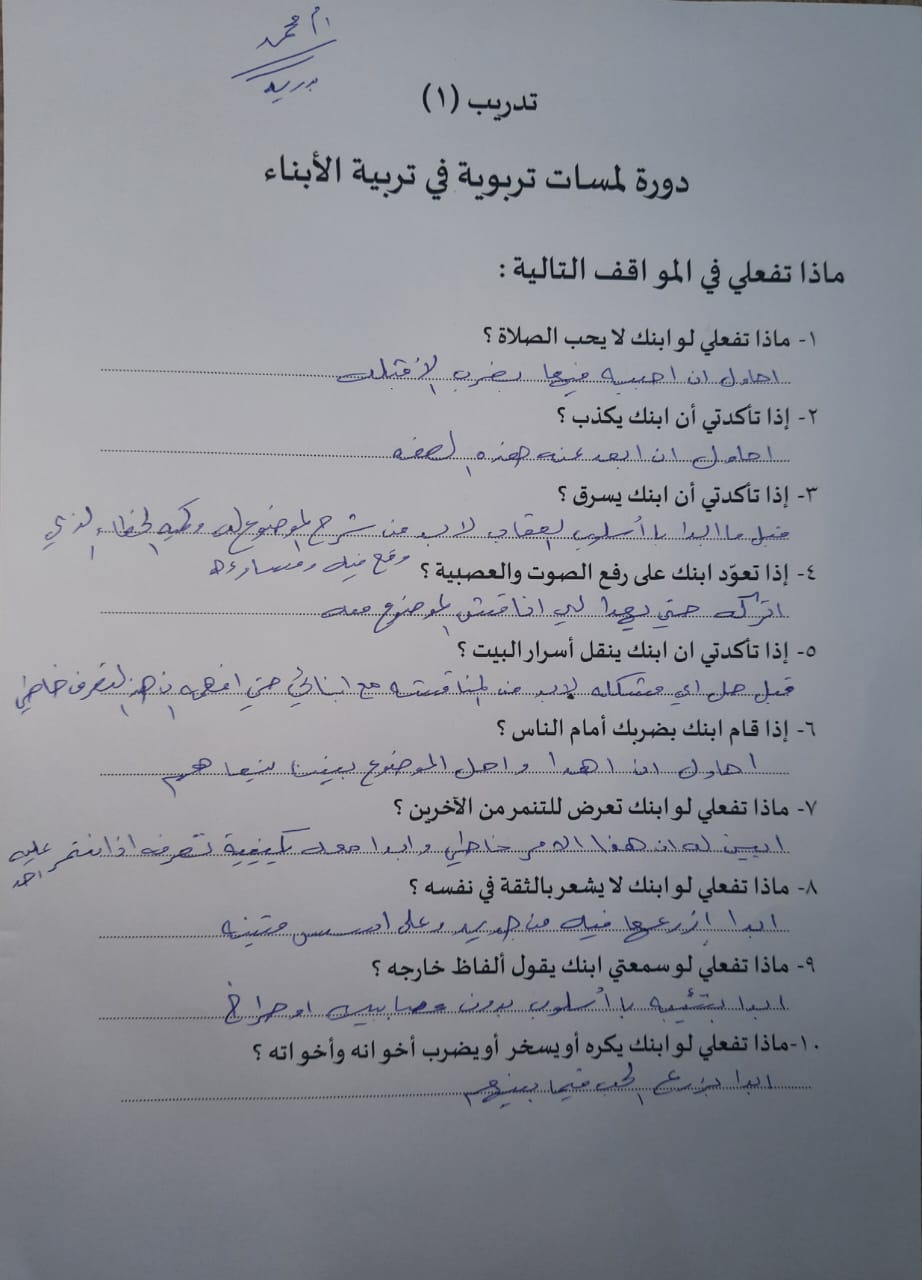 ام محمد
دريد
تدريب (١)
دورة لمسات تربوية في تربية الأبناء
ماذا تفعلي في المواقف التالية :
١- ماذا تفعلي لو ابنك لا يحب الصلاة ؟
احاول ان احببه فيها بضرب الامثله
٢- إذا تأكدتي أن ابنك يكذب ؟
احاول ان ابعد عنه هذه الصفه
٣- إذا تأكدتي أن ابنك يسرق ؟
قبل ما ابدا باأسلوب العقاب لابد من شرح الموضوع له وكيه الخطاء الذي
وقع فيه ومساوءه
٤- إذا تعوّد ابنك على رفع الصوت والعصبية ؟
اتركه حتي يهدا لي اناقش الموضوع معه
٥- إذا تأكدتي ان ابنك ينقل أسرار البيت ؟
قبل حل اي مشكله لابد من المناقشه مع ابنائي حتي افهمه ان هذا التصرف خاطي
٦- إذا قام ابنك بضربك أمام الناس ؟
احاول ان اهدا واحل الموضوع بيننا
٧- ماذا تفعلي لو ابنك تعرض للتنمر من الآخرين ؟
ابين له ان هذا الامر خاطي وابدا معه بكيفية تصرفه اذا تنمر عليه
احد
٨- ماذا تفعلي لو ابنك لا يشعر بالثقة في نفسه ؟
ابدا ازرعها فيه من جديد وعلى اسس متينه
٩- ماذا تفعلي لو سمعتي ابنك يقول ألفاظ خارجه ؟
ابدا بتنبيه باأسلوب بدون عصابيه او صراخ
١٠-ماذا تفعلي لو ابنك يكره أو يسخر أو يضرب أخوانه وأخواته ؟
ابدا بزرع الحب فيما بينهم